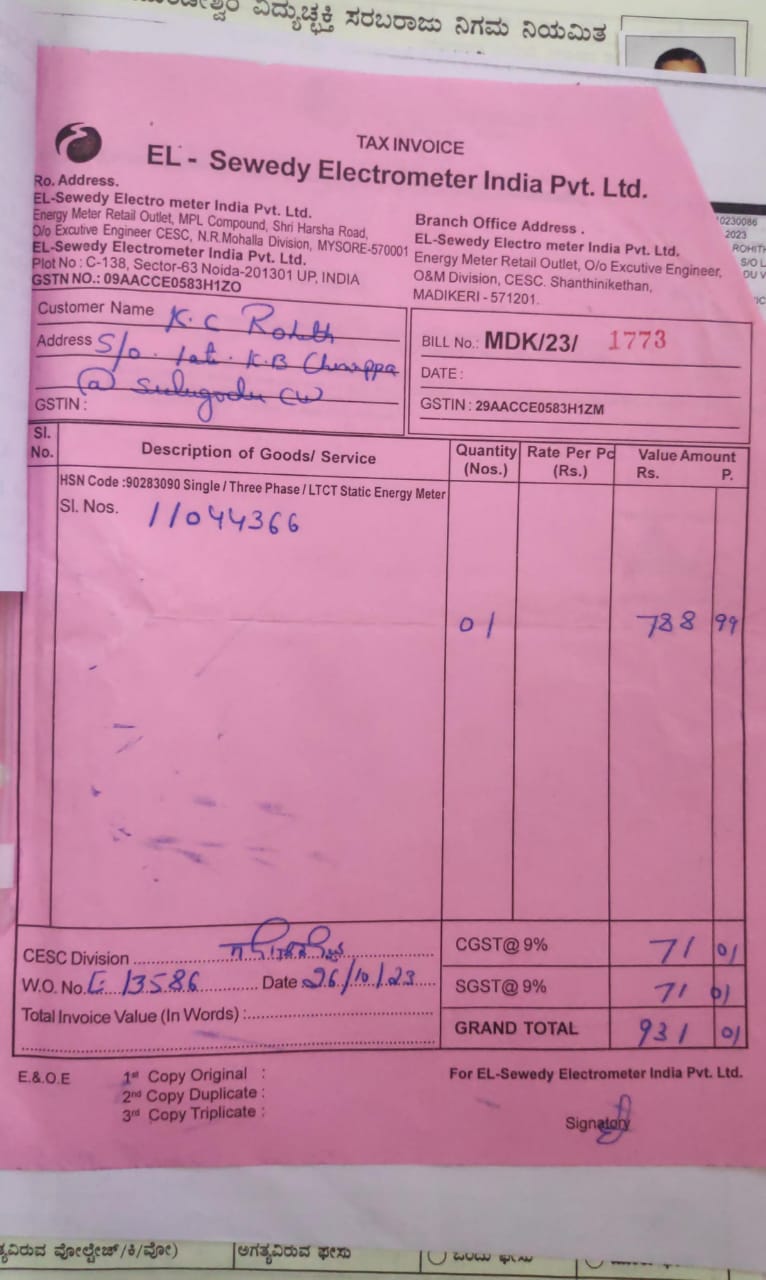 ವಿದ್ಯುಚ್ಛಕ್ತಿ ಸರಬರಾಜು ನಿಗಮ ನಿಯಮಿತ
TAX INVOICE
EL - Sewedy Electrometer India Pvt. Ltd.
Ro. Address.
EL-Sewedy Electro meter India Pvt. Ltd.
Energy Meter Retail Outlet, MPL Compound, Shri Harsha Road,
O/o Excutive Engineer CESC, N.R.Mohalla Division, MYSORE-570001
EL-Sewedy Electrometer India Pvt. Ltd.
Plot No : C-138, Sector-63 Noida-201301 UP, INDIA
GSTN NO.: 09AACCE0583H1ZO
Branch Office Address .
EL-Sewedy Electro meter India Pvt. Ltd.
Energy Meter Retail Outlet, O/o Excutive Engineer,
O&M Division, CESC. Shanthinikethan,
MADIKERI - 571201.
10230086
2023
ROHITH
S/O L
Customer Name K. C Rohith
Address S/o. late. K.B Chinnappa
@
GSTIN :
BILL No.: MDK/23/ 1773
DATE :
GSTIN : 29AACCE0583H1ZM
Sl. No. Description of Goods/ Service Quantity (Nos.) Rate Per Pc (Rs.) Value Amount Rs. P.
HSN Code :90283090 Single / Three Phase / LTCT Static Energy Meter
Sl. Nos. 11044366
01 788 99
CESC Division
W.O. No. 13586 Date 26/10/23
Total Invoice Value (In Words) :
CGST@ 9% 71 01
SGST@ 9% 71 01
GRAND TOTAL 931 01
E.&.O.E
1st Copy Original :
2nd Copy Duplicate :
3rd Copy Triplicate :
For EL-Sewedy Electrometer India Pvt. Ltd.
Signatory
ವೋಲ್ಟೇಜ್/ಕಿ/ವೋ) ಅಗತ್ಯವಿರುವ ಫೇಸು ಒಂದು ಫೇಸು